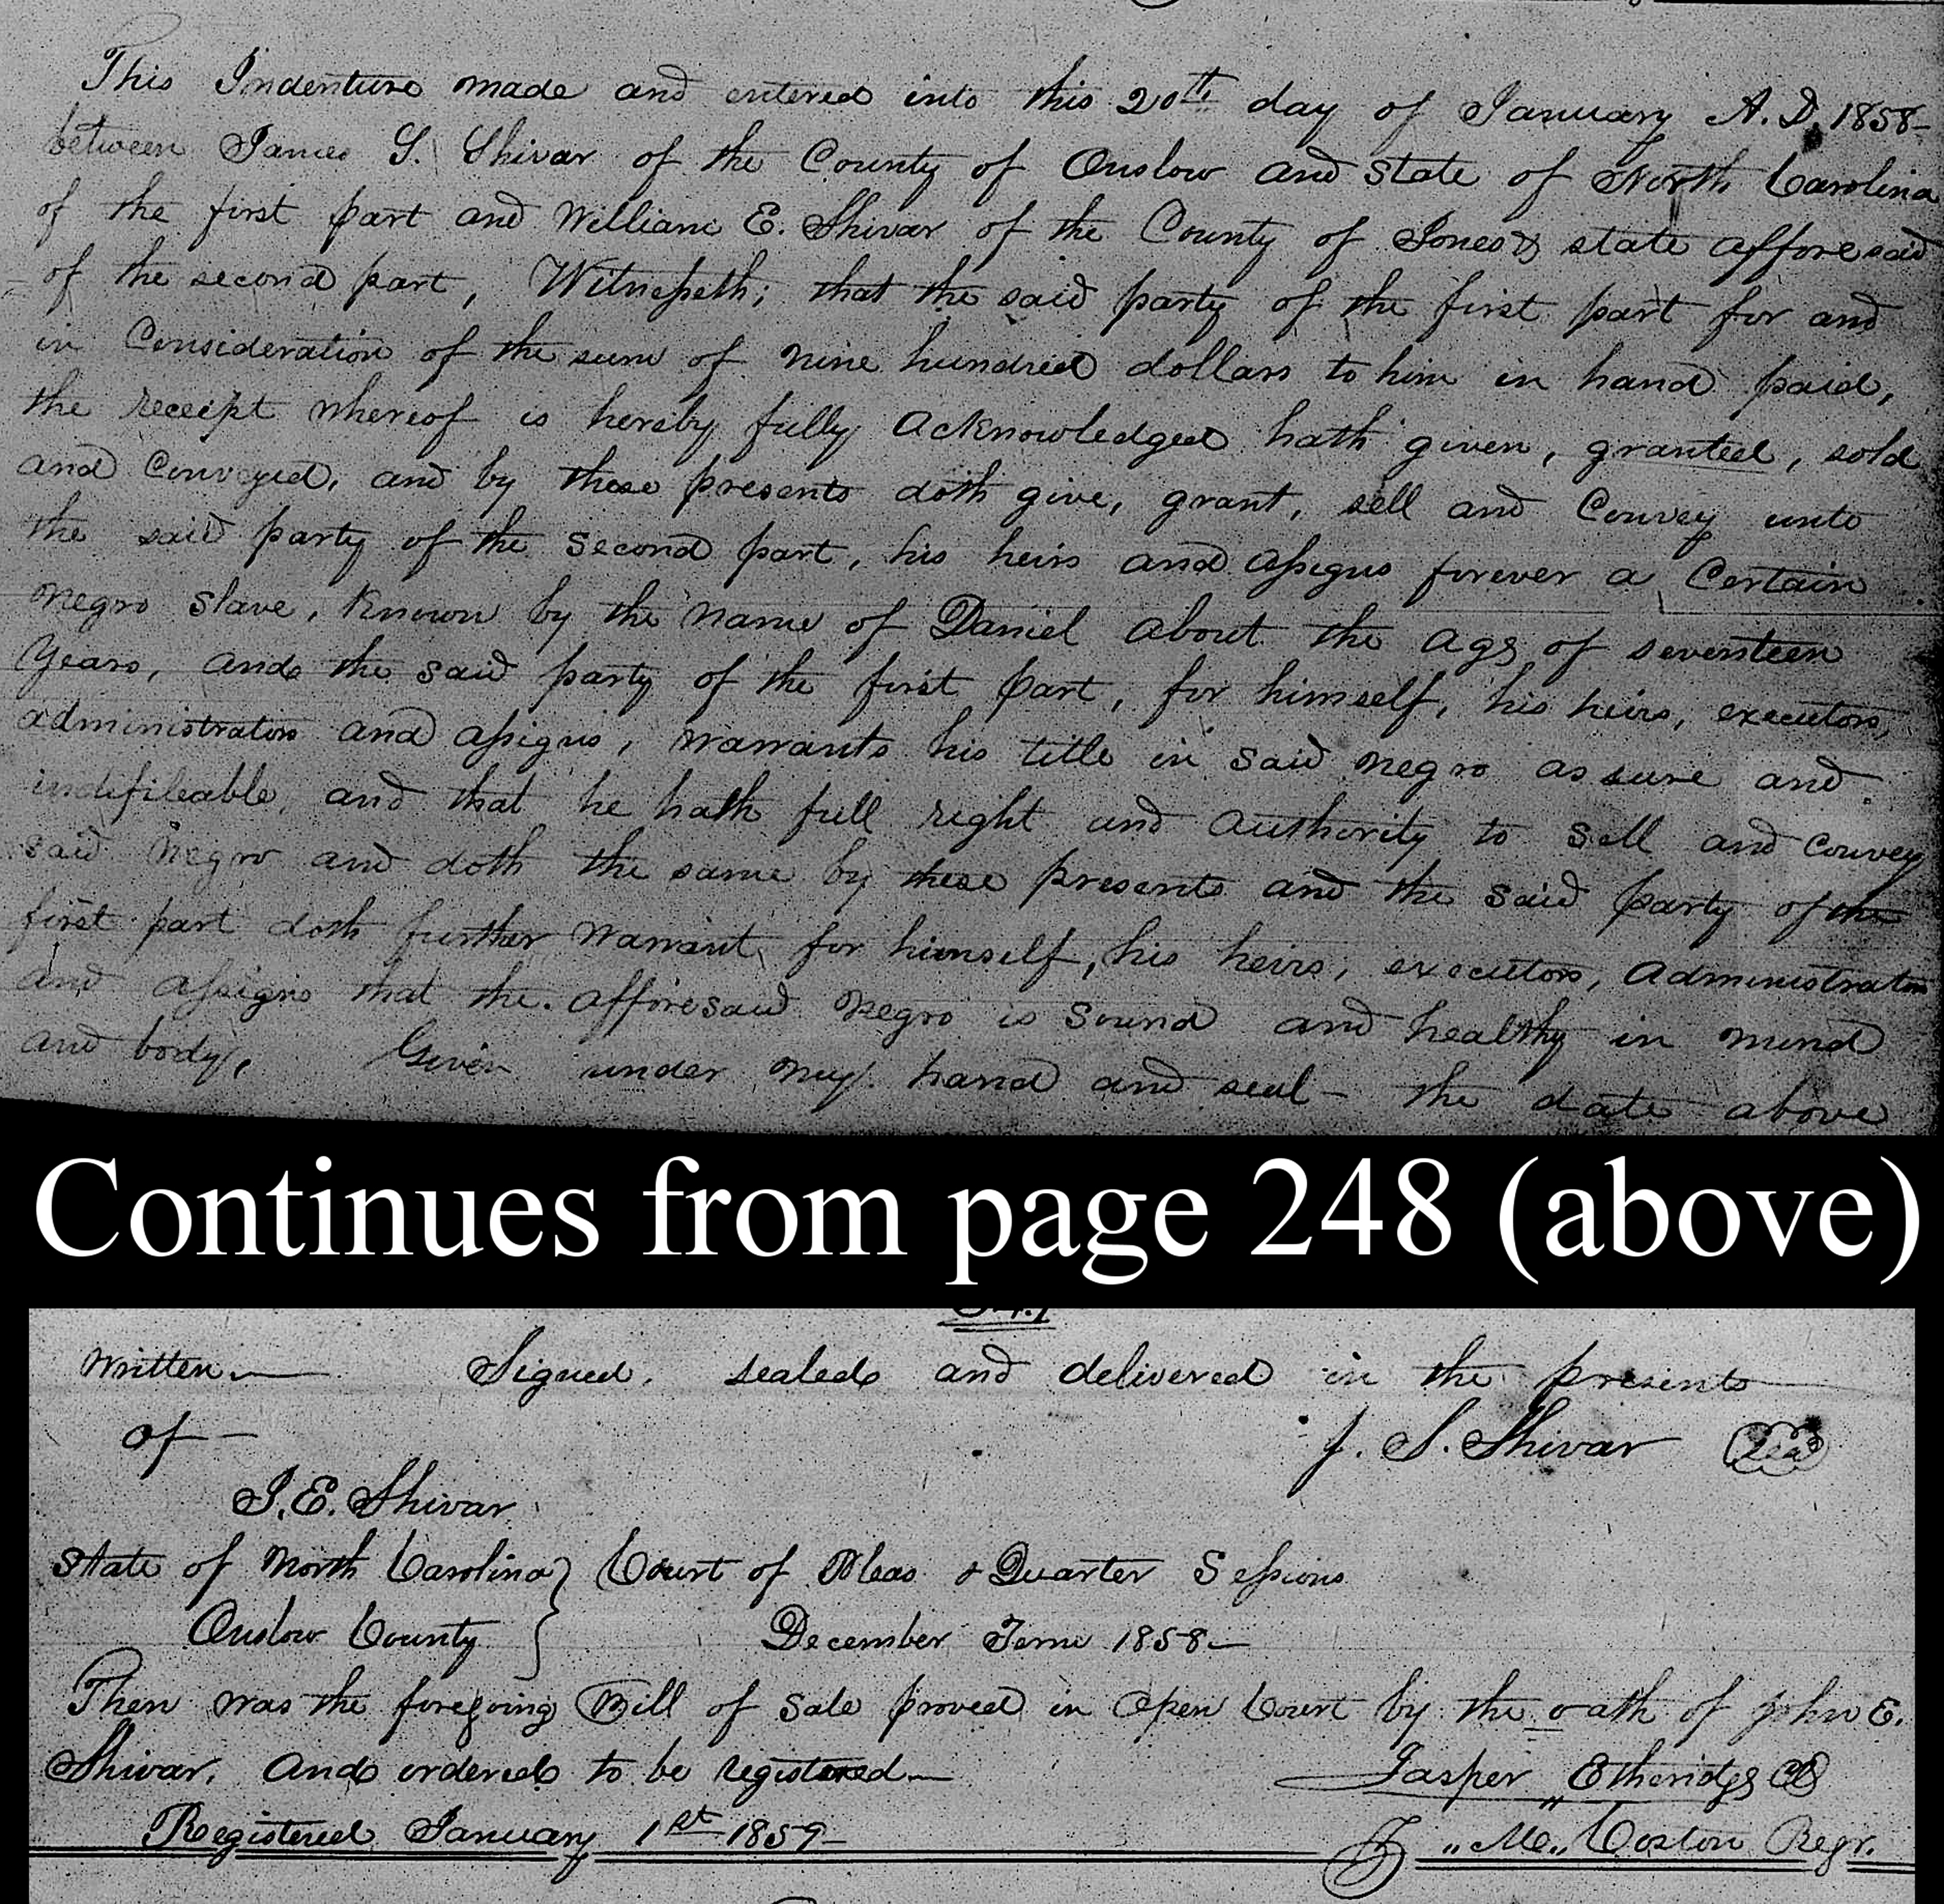 This Indenture made and entered into this 20th day of January A. D. 1858
between James S. Shivar of the County of Onslow and State of North Carolina
of the first part and William E. Shivar of the County of Jones & state afforesaid
of the second part, Witnesseth; that the said party of the first part for and
in Consideration of the sum of nine hundred dollars to him in hand paid,
the receipt whereof is hereby fully acknowledged hath given, granted, sold
and Conveyed, and by these presents doth give, grant, sell and Convey unto
the said party of the second part, his heirs and assigns forever a Certain
negro slave, Known by the name of Daniel about the age of seventeen
Years, and the said party of the first part, for himself, his heirs, executors,
administrators and assigns, warrants his title in said negro as sure and
indifileable, and that he hath full right and authority to sell and convey
said negro and doth the same by these presents and the said party of the
first part doth further warrant for himself, his heirs, executors, administrators
and assigns that the afforesaid negro is sound and healthy in mind
and body, Given under my hand and seal – the date above
Continues from page 248 (above)
Written — Signed, sealed and delivered in the presents
of – J. S. Shivar Seal
J. E. Shivar
State of North Carolina } Court of Pleas & Quarter Sessions
Onslow County } December Term 1858 –
Then was the foregoing Bill of Sale proved in Open Court by the oath of John E.
Shivar, and ordered to be registered – Jasper Etheridge CC
Registered January 1st 1859 – "M" Coston Regr.